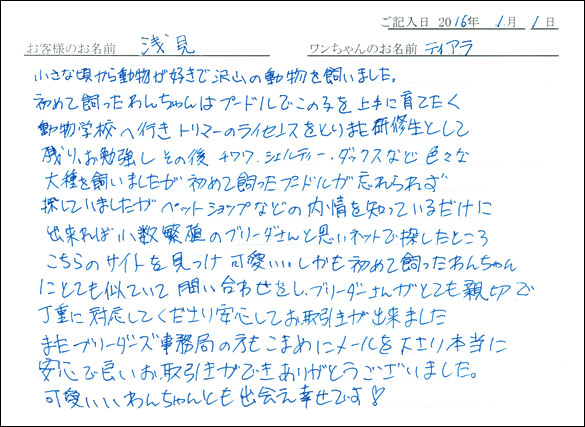 ご記入日 2016年 1月 1日
お客様のお名前 浅見 ワンちゃんのお名前 ティアラ
小さな頃から動物が好きで沢山の動物を飼いました。
初めて飼ったわんちゃんはプードルでこの子を上手に育てたく
動物学校へ行きトリマーのライセンスをとりまた研修生として
残り、お勉強しその後チワワ、シェルティー、ダックスなど色々な
犬種を飼いましたが初めて飼ったプードルが忘れられず
探していましたがペットショップなどの内情を知っているだけに
出来れば小数繁殖のブリーダさんと思いネットで探したところ
こちらのサイトを見つけ可愛いいしかも初めて飼ったわんちゃん
にとても似ていて問い合わせをし、ブリーダーさんがとても親切で
丁重に対応してくださり安心してお取引きが出来ました
またブリーダーズ事務局の方もこまめにメールを下さり本当に
安心で良いお取引きができありがとうございました。
可愛いいわんちゃんとも出会え幸せです♡